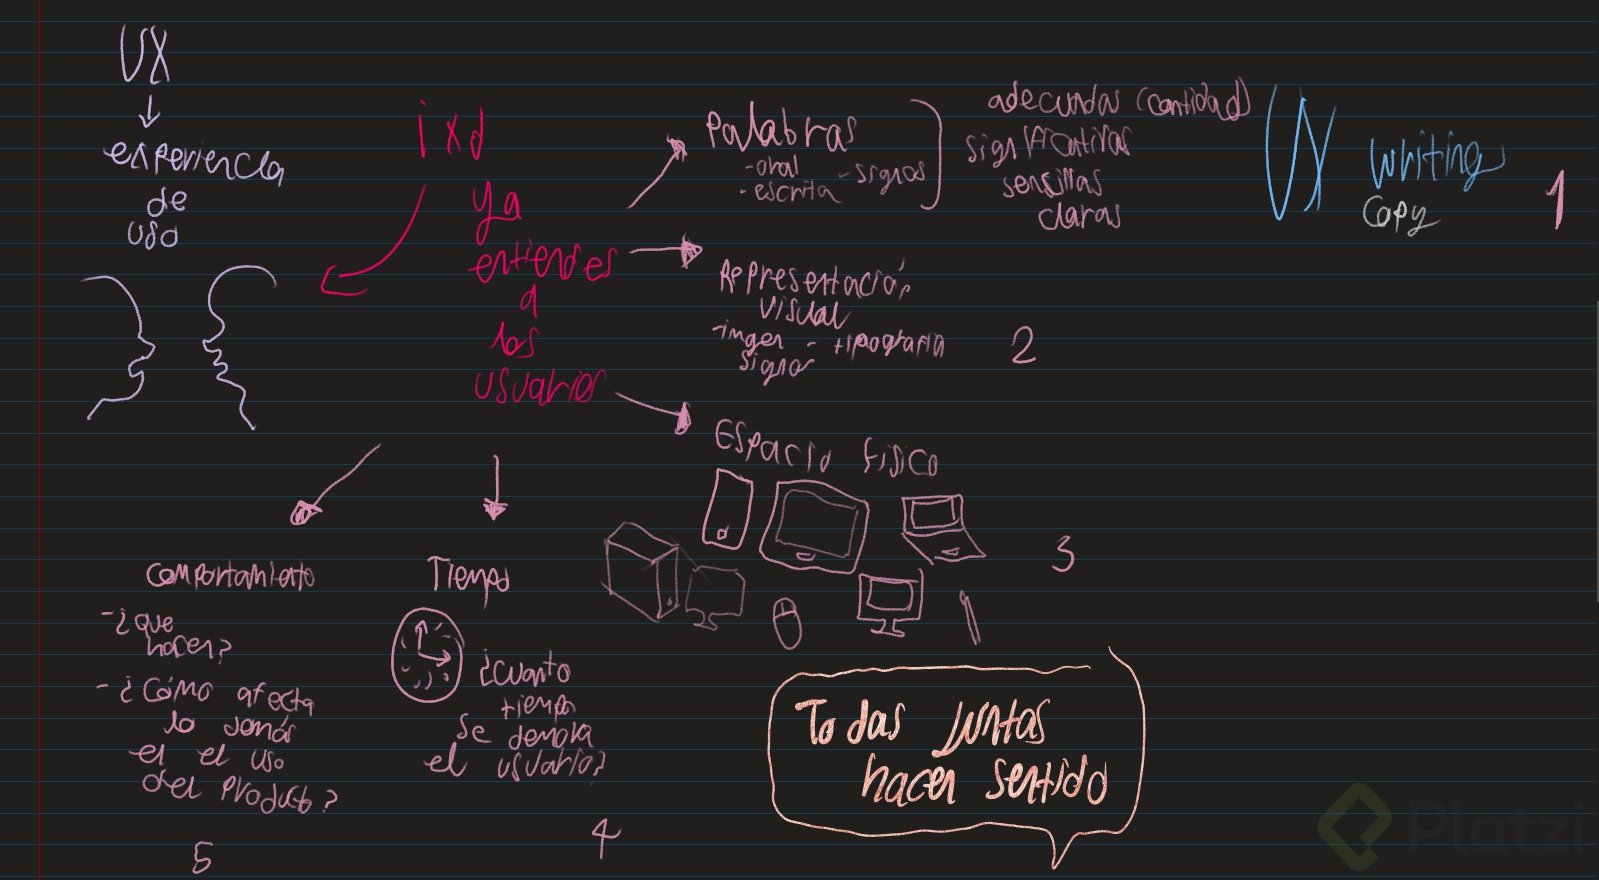 UX
experiencia
de
uso
ixd
ya
entiendes
a
los
usuarios
Palabras
-oral
-escrita
-signos
adecuadas (cantidad)
significativas
sencillas
claras
UX
Writing
Copy
1
Representación
visual
- tipografía
signos
2
Espacio físico
3
Tiempo
¿Cuanto
tiempo
se demora
el usuario?
4
Comportamiento
-¿que
hacen?
-¿Cómo afecta
lo demás
el el uso
del producto?
5
Todas juntas
hacen sentido
Platzi